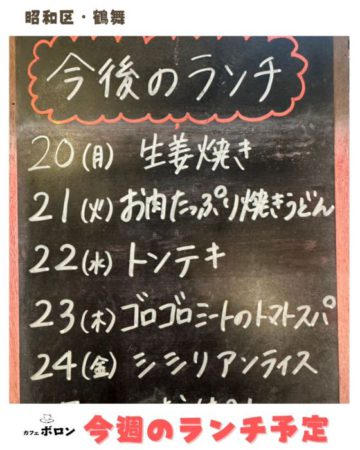 昭和区・鶴舞
今後のランチ
20(月) 生姜焼き
21(火)お肉たっぷり焼きうどん
22(水) トンテキ
23(木)ゴロゴロミートのトマトスパ
24(金) シシリアンライス
カフェ ボロン
今週のランチ予定